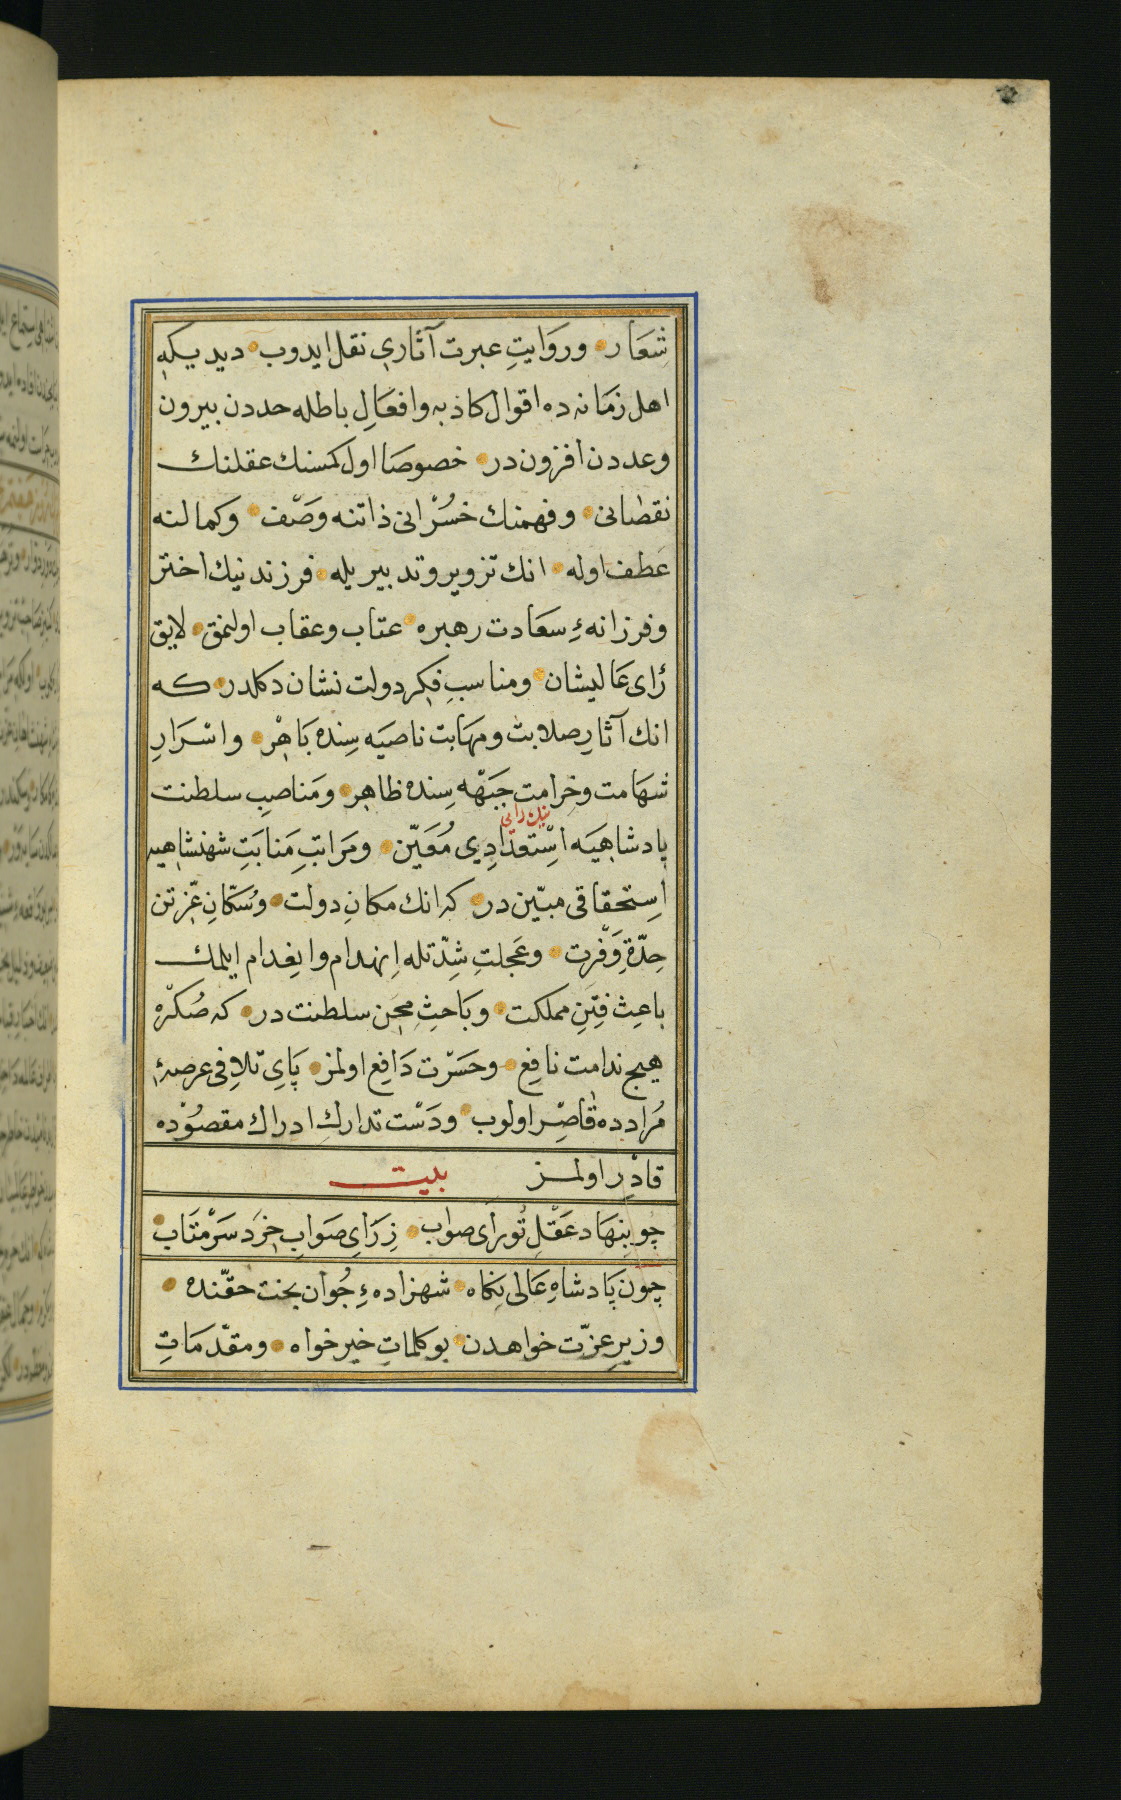 شِعَار وروَايتِ عبرت آثاری نقل ایدوب دیدیکه
اهل زمَانه ده اقوال کاذبه وافعَالِ باطله حددن بیرون
وعددن افزون در خصوصَا اول کمسنك عقلنك
نقصانی وفهمنك خسُرْانی ذاتنه وصْف وکمالنه
عَطف اوله انك تزویر وتدبیریله فرزند نیك اختر
وفرزانهءِ سعَادت رهبره عتاب وعقاب اولنمق لایق
رُای عَالیشان ومناسبِ فِکر دولت نشان دکلدر که
انك آثارِ صلابت ومهَابت ناصیَه سِنده بَاهِرْ واسْرَارِ
شهَامت وخِرامت جَبْهه سِنده ظاهِر ومَناصِبِ سلطنت
پادشاهیَه اسِتْعدَادِی مُعَیّن ومَراتبِ مَنابَتِ شهنشاهیه
استحقاقی مبیّن در که انك مکانِ دولت وسُکّانِ عزّتن
حِدّةِ وَفْرت وعَجلتِ شِدّتله اِنهدام وانِعدام ایلمك
باعِث فِتَنِ مملکت وبَاحثِ مِحَن سلطنت در که صُکرْه
هیچ ندامت نافِع وحَسرْت دَافِع اولمز پَایِ تلاَفِی عرصهٔ
مُراد ده قاصِر اولوب ودَسْت تدارك ادراك مقصُوْده
قادِر اولمز بیت
چو بنهاد عَقْلِ تُو رای صواب زِ رَایِ صَوابِ خِرَد سَرْمَتَاب
چون پَادشاهِ عَالی پناه شهزادهءِ جُوان بخت حقّنده
وزیرِ عزّت خواهدن بو کلماتِ خیر خواه ومقدّمَاتِ